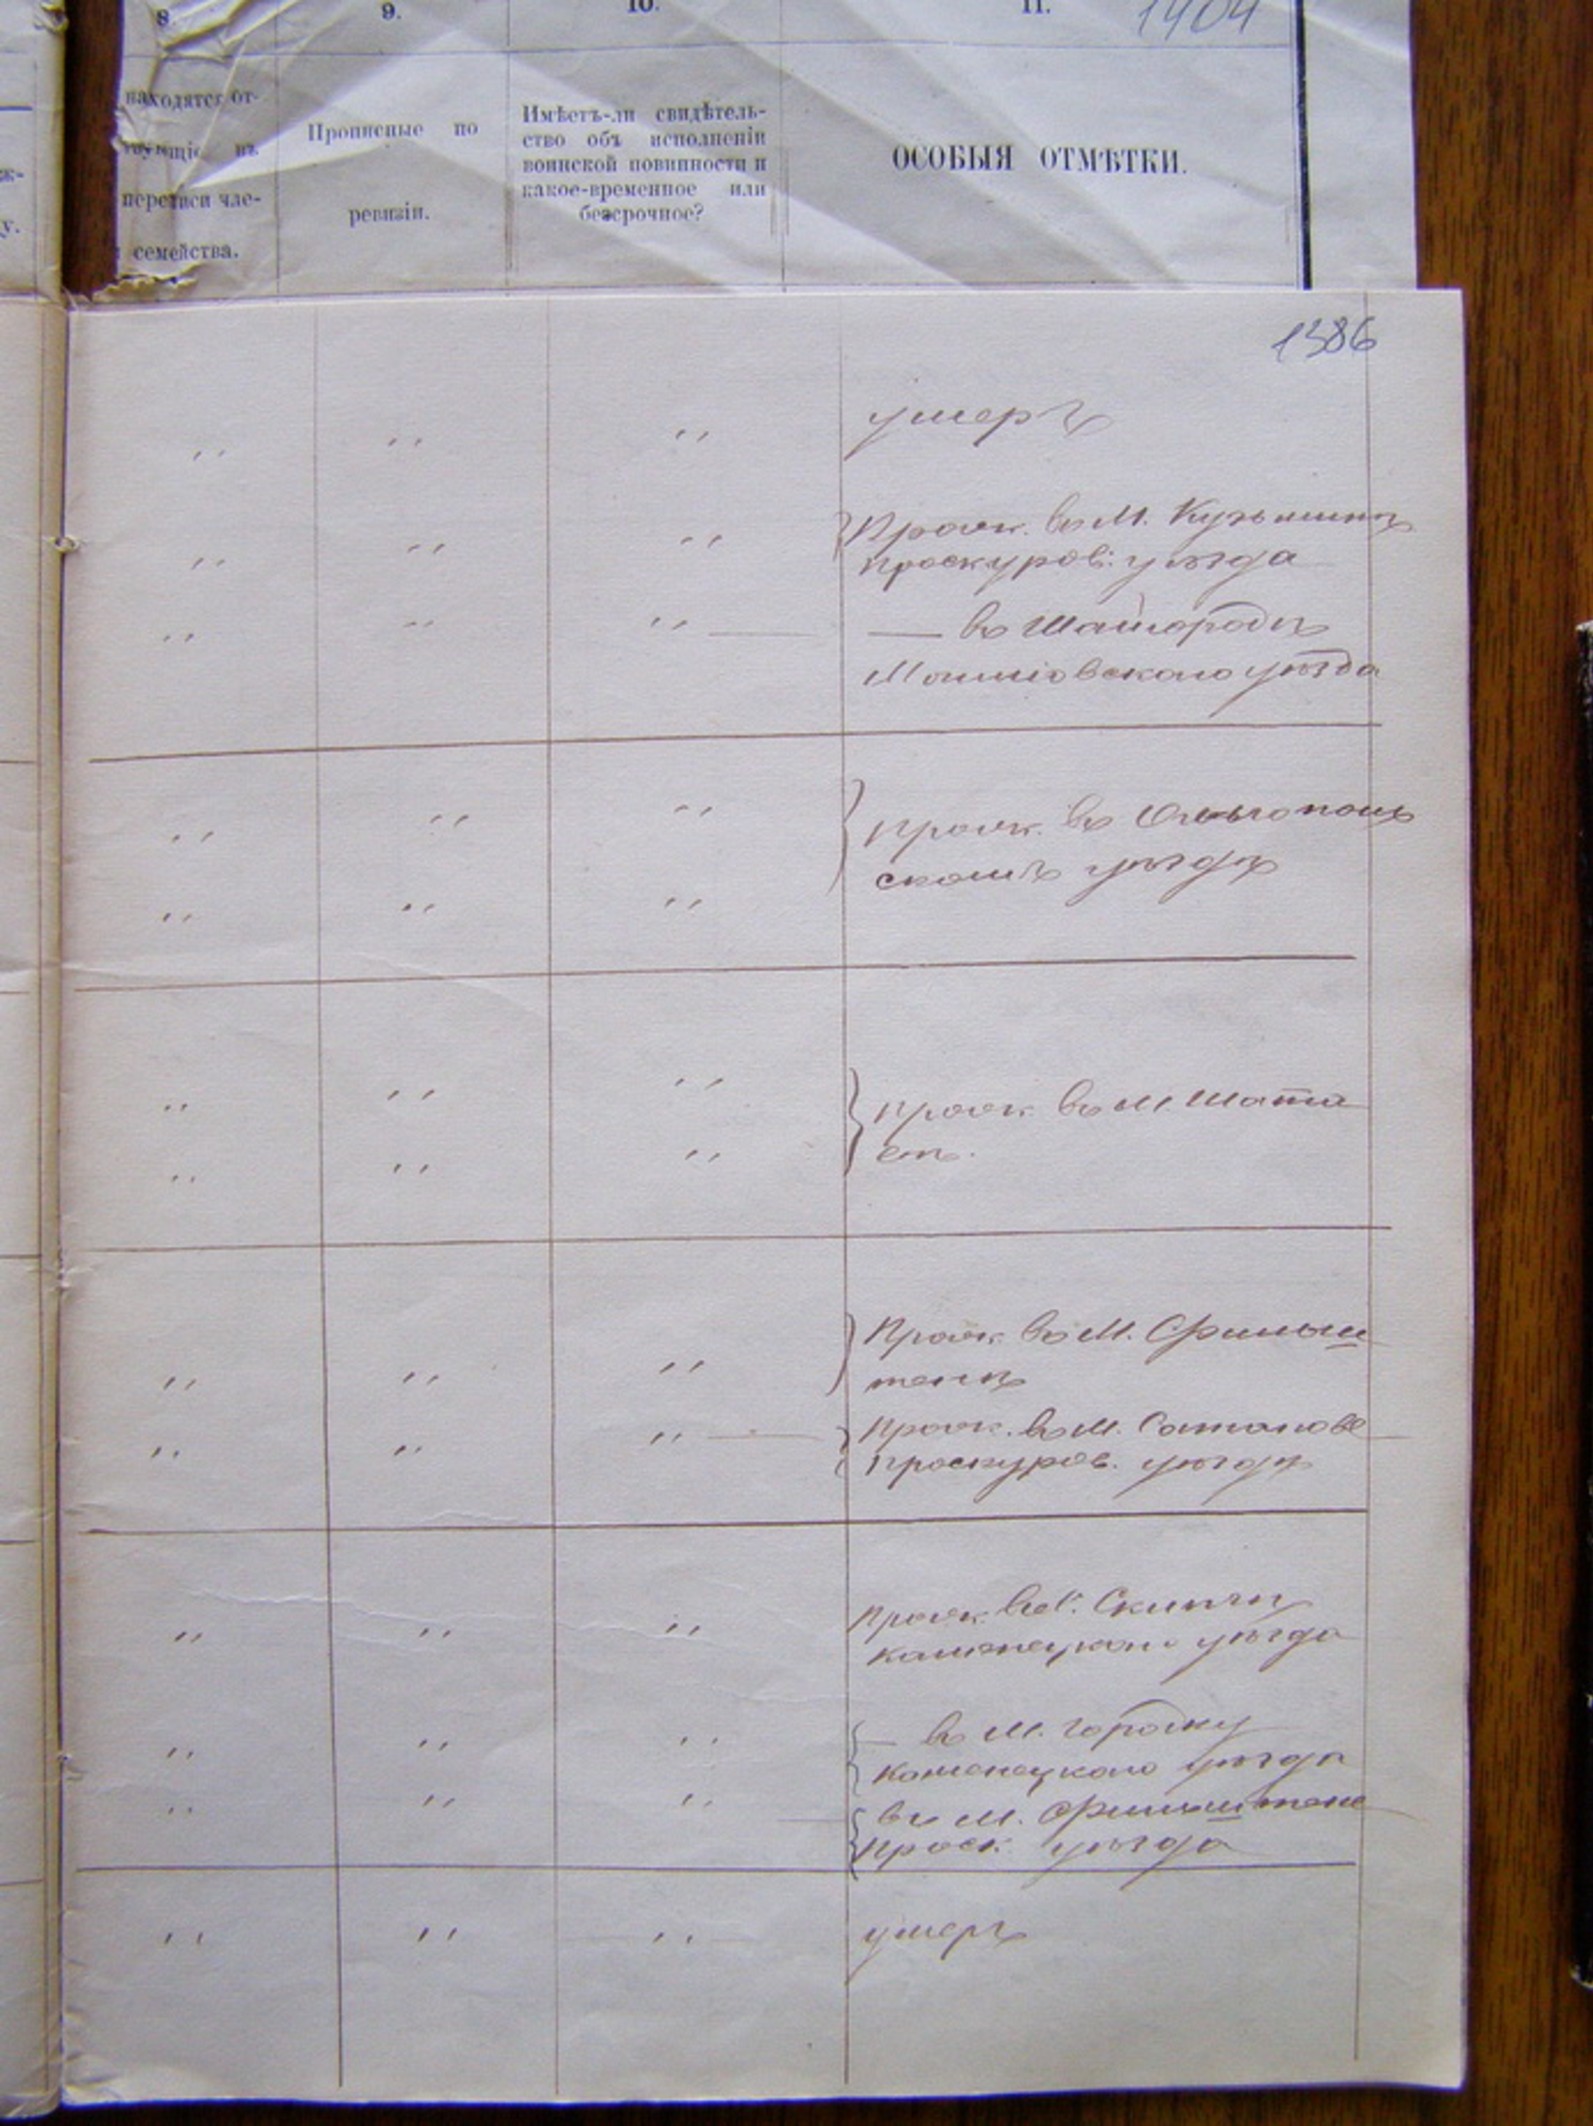 8. 9. 10. 11. 1404
находятся от-
вующіе въ
переписи чле-
семейства.
Прописные по
ревизіи.
Имѣетъ-ли свидѣтель-
ство объ исполненіи
воинской повинности и
какое-временное или
безсрочное?
ОСОБЫЯ ОТМѢТКИ.
ж-
у.
1386
" " " умеръ
" " " Прож. въ М. Кузьминѣ
проскуров: уѣзда
" " " — въ Шайгородѣ
Могилевскаго уѣзда
" " " Прож. въ Ольгополь
скомъ уѣздѣ
" " "
" " " прож. въ М. Шата
" " "
" " " Прож. въ М. Фрильш
" " " прож. въ М. Сатанове
проскуров. уѣздѣ
" " " прож. въ С. Скипчи
каменецкаго уѣзда
" " " — въ М. Городку
каменецкаго уѣзда
" " " въ М. Фрильштене
проск. уѣзда
" " " умеръ